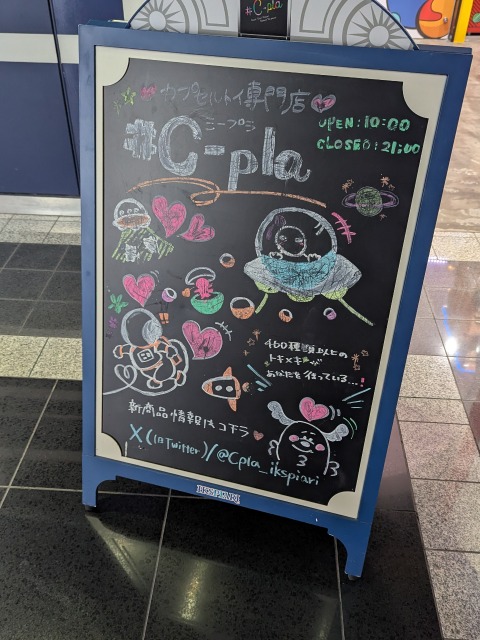 #C-pla
カプセルトイ専門店
シープラ
#C-pla
OPEN:10:00
CLOSED:21:00
460種類以上の
トキメキが
あなたを待っている...!
新商品情報はコチラ
X(旧Twitter)/@Cpla_ikspiari
IKSPIARI